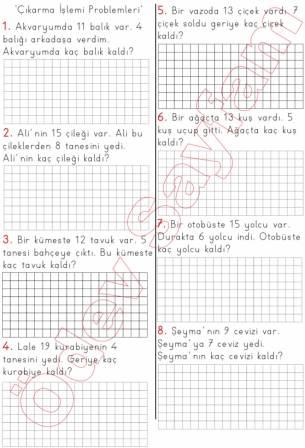 'Çıkarma İşlemi Problemleri'
1. Akvaryumda 11 balık var. 4
balığı arkadaşa verdim.
Akvaryumda kaç balık kaldı?
2. Ali'nin 15 çileği var. Ali bu
çileklerden 8 tanesini yedi.
Ali'nin kaç çileği kaldı?
3. Bir kümeste 12 tavuk var. 5
tanesi bahçeye çıktı. Bu kümeste
kaç tavuk kaldı?
4. Lale 19 kurabiyenin 4
tanesini yedi. Geriye kaç
kurabiye kaldı?
5. Bir vazoda 13 çiçek vardı. 7
çiçek soldu geriye kaç çiçek
kaldı?
6. Bir ağaçta 13 kuş vardı. 5
kuş uçup gitti. Ağaçta kaç kuş
kaldı?
7. Bir otobüste 15 yolcu var.
Durakta 6 yolcu indi. Otobüste
kaç yolcu kaldı?
8. Şeyma'nın 9 cevizi var.
Şeyma'ya 7 ceviz yedi.
Şeyma'nın kaç cevizi kaldı?
Ödev Sayfam